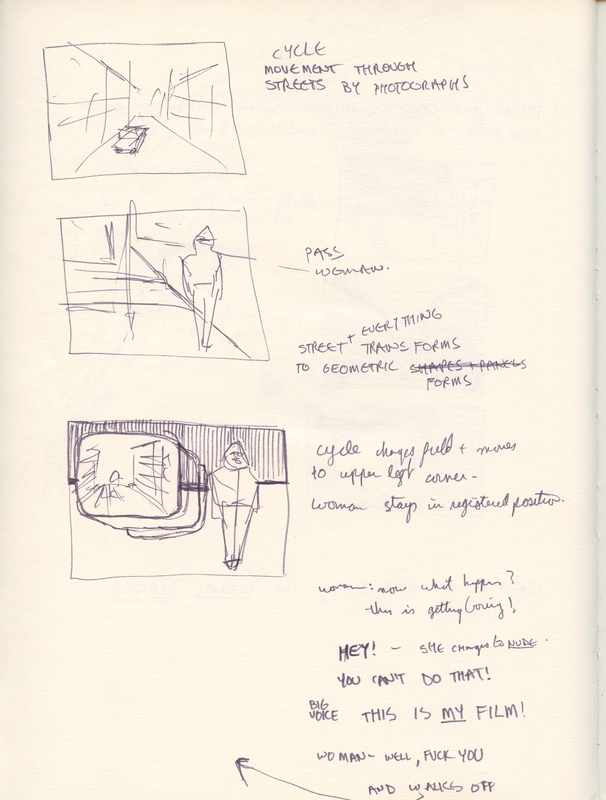 CYCLE
MOVEMENT THROUGH
STREETS BY PHOTOGRAPHS
PASS
WOMAN.
STREET + EVERYTHING
TRANSFORMS
TO GEOMETRIC SHAPES + PANELS
FORMS
cycle changes field + moves
to upper left corner -
woman stays in registered position.
woman: now what happens?
this is getting boring!
HEY! - SHE changes to NUDE.
YOU CAN'T DO THAT!
BIG VOICE THIS IS MY FILM!
WOMAN - WELL, FUCK YOU
AND WALKS OFF